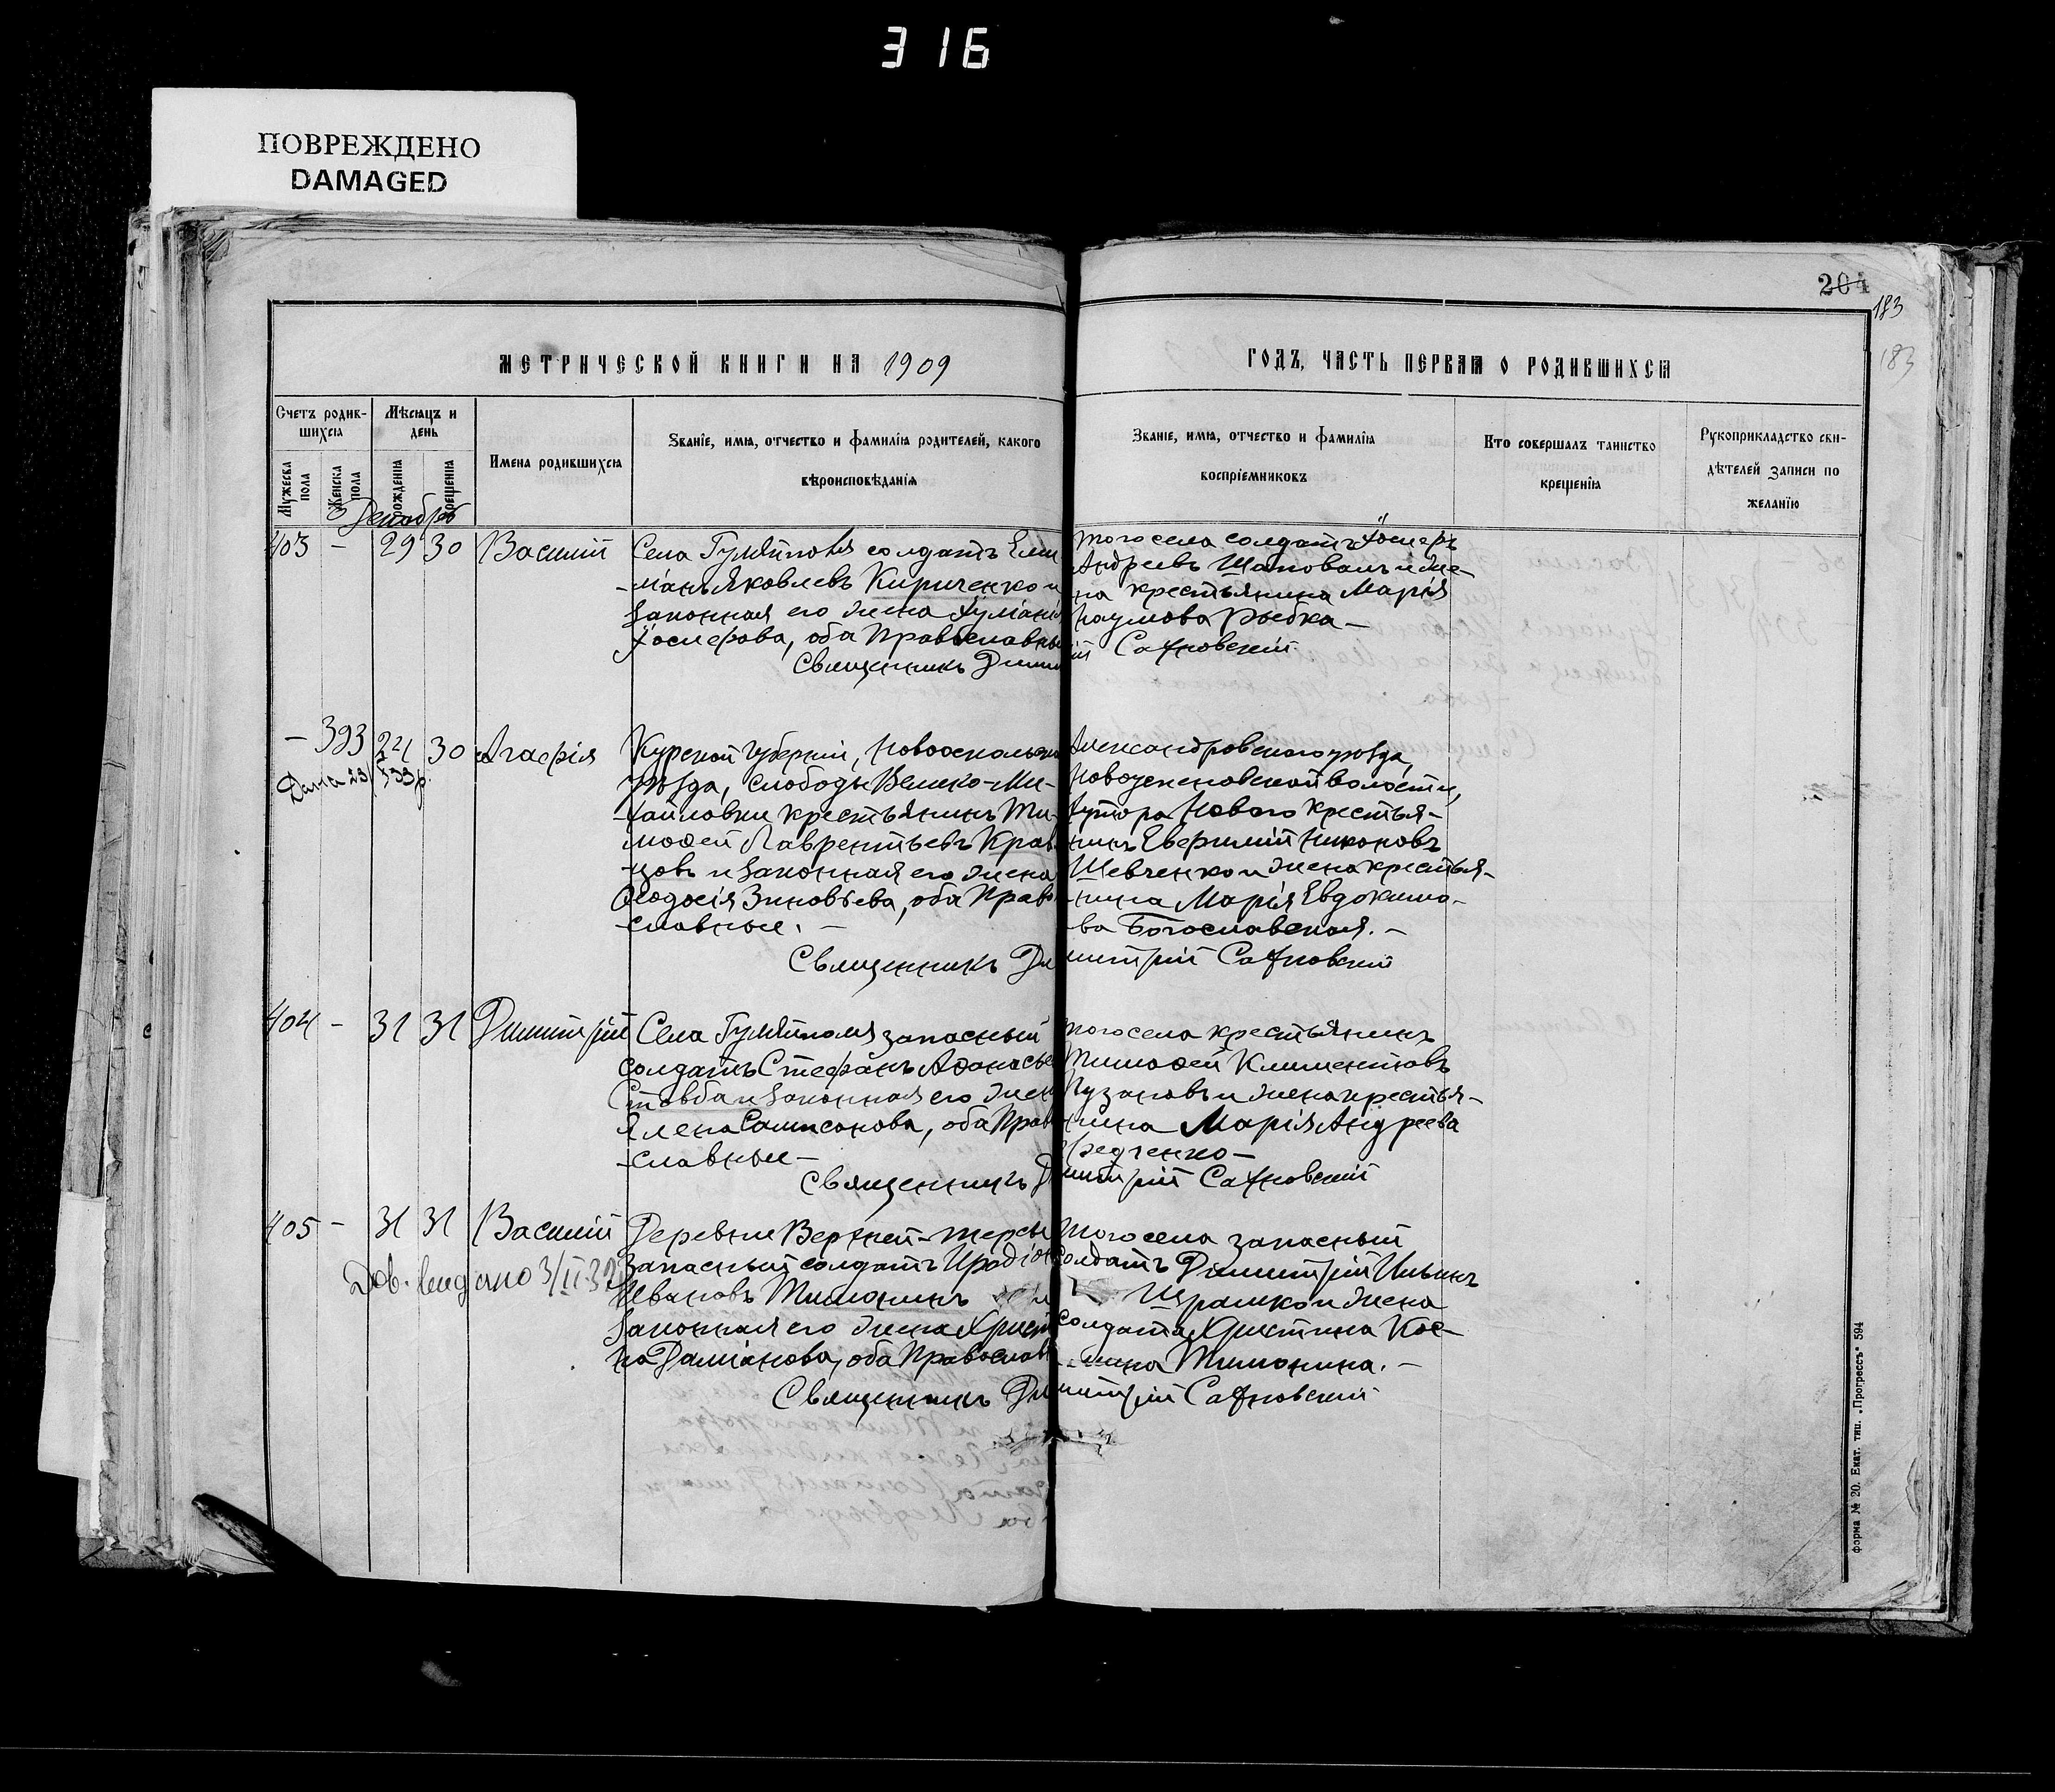 316
ПОВРЕЖДЕНО
DAMAGED
204
183
183
МЕТРИЧЕСКОЙ КНИГИ НА 1909
ГОДЪ, ЧАСТЬ ПЕРВАЯ О РОДИВШИХСЯ
Счетъ родив-
шихся
Мѣсяцъ и
день
Мужеска
пола
Женска
пола
рожденія
крещенія
Имена родившихся
Званіе, имя, отчество и фамилія родителей, какого
вѣроисповѣданія
Званіе, имя, отчество и фамилія
воспріемниковъ
Кто совершалъ таинство
крещенія
Рукоприкладство сви-
дѣтелей записи по
желанію
Декабрь
403 - 29 30 Василій
Села Гуляйполя солдатъ Еми
-ліанъ Яковлевъ Кириченко и
законная его жена Іуліанія
Іосифова, оба Православны
Священникъ Дими
того села солдатъ Іосифъ
Андреевъ Шаповалъ и же-
на крестьянина Марія
Наумова Рыбка-
ій Сахновскій
- 393 24 30 Агафія
Курской губерніи, Новооскольска
уѣзда, слободы Велико-Ми-
-хайловки крестьянинъ Ти-
моѳей Лаврентьевъ Крав
-цовъ и законная его жена
Ѳеодосія Зиновіева, оба Право
-славные. -
Священникъ Ди
Александровскаго уѣзда,
Новоуспеновской волости,
хутора Новаго крестья-
нинъ Евфимій Никоновъ
Шевченко и жена крестья-
-нина Марія Евдокимо-
-ва Богославская. -
митрій Сахновскій
404 - 31 31 Димитрій
Села Гуляйполя запасный
солдатъ Стефанъ Аѳанасье
Стовба и законная его жен
Елена Самсонова, оба Прав
-славные-
Священникъ Д
того села крестьянинъ
Тимоѳей Климентовъ
Пузановъ и жена крестья-
-нина Марія Андреева
митрій Сахновскій
405 - 31 31 Василій
Деревни Верхней-Терсы
запасный солдатъ Иродіон
Ивановъ Тимонинъ и
законная его жена Христи
на Даміанова, оба Православ
Священникъ Ди
того села запасный
солдатъ Димитрій Ильинъ
Ищрамко и жена
солдата Христина Кос-
-мина Тимонина. -
митрій Сахновскій
форма № 20. Екат. тип. „Прогрессъ" 594